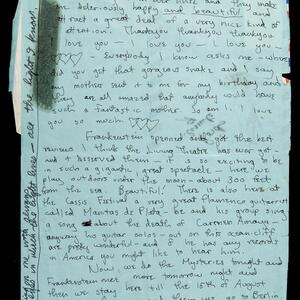 and they make
me deleriously happy and beautiful and
attract a great deal of a very nice kind of
attention. Thankyou thankyou thankyou
I love you - I love you - I love you -
Everybody I know asks me - where
did you get that gorgeous snake and I say
my mother sent it to me for my birthday and
they are all amazed that anybody could have
such a fantastic mother so am I. I love
you so much
Frankenstein openned and got the best
reviews I think the Living Theatre has ever got -
and it deserved them - it is so exciting to be
in such a gigantic great spectacle - here we
play outdoors under the moon - about 300 feet
from the sea. Beautiful! There is also here at
the Cassis Festival a very great flamenco guitarist
called Manitas de Plata - he and his group sing
a song about the death of Carmen Amaya -
anyway his guitar solos - out on this ocean cliff
are pretty wonderful - and if he has any records
in America you might like to hear him.
Now we do the Mysteries tonight and
Frankenstein once more tomorrow night and
then we stay here till the 15th of August
to Berlin